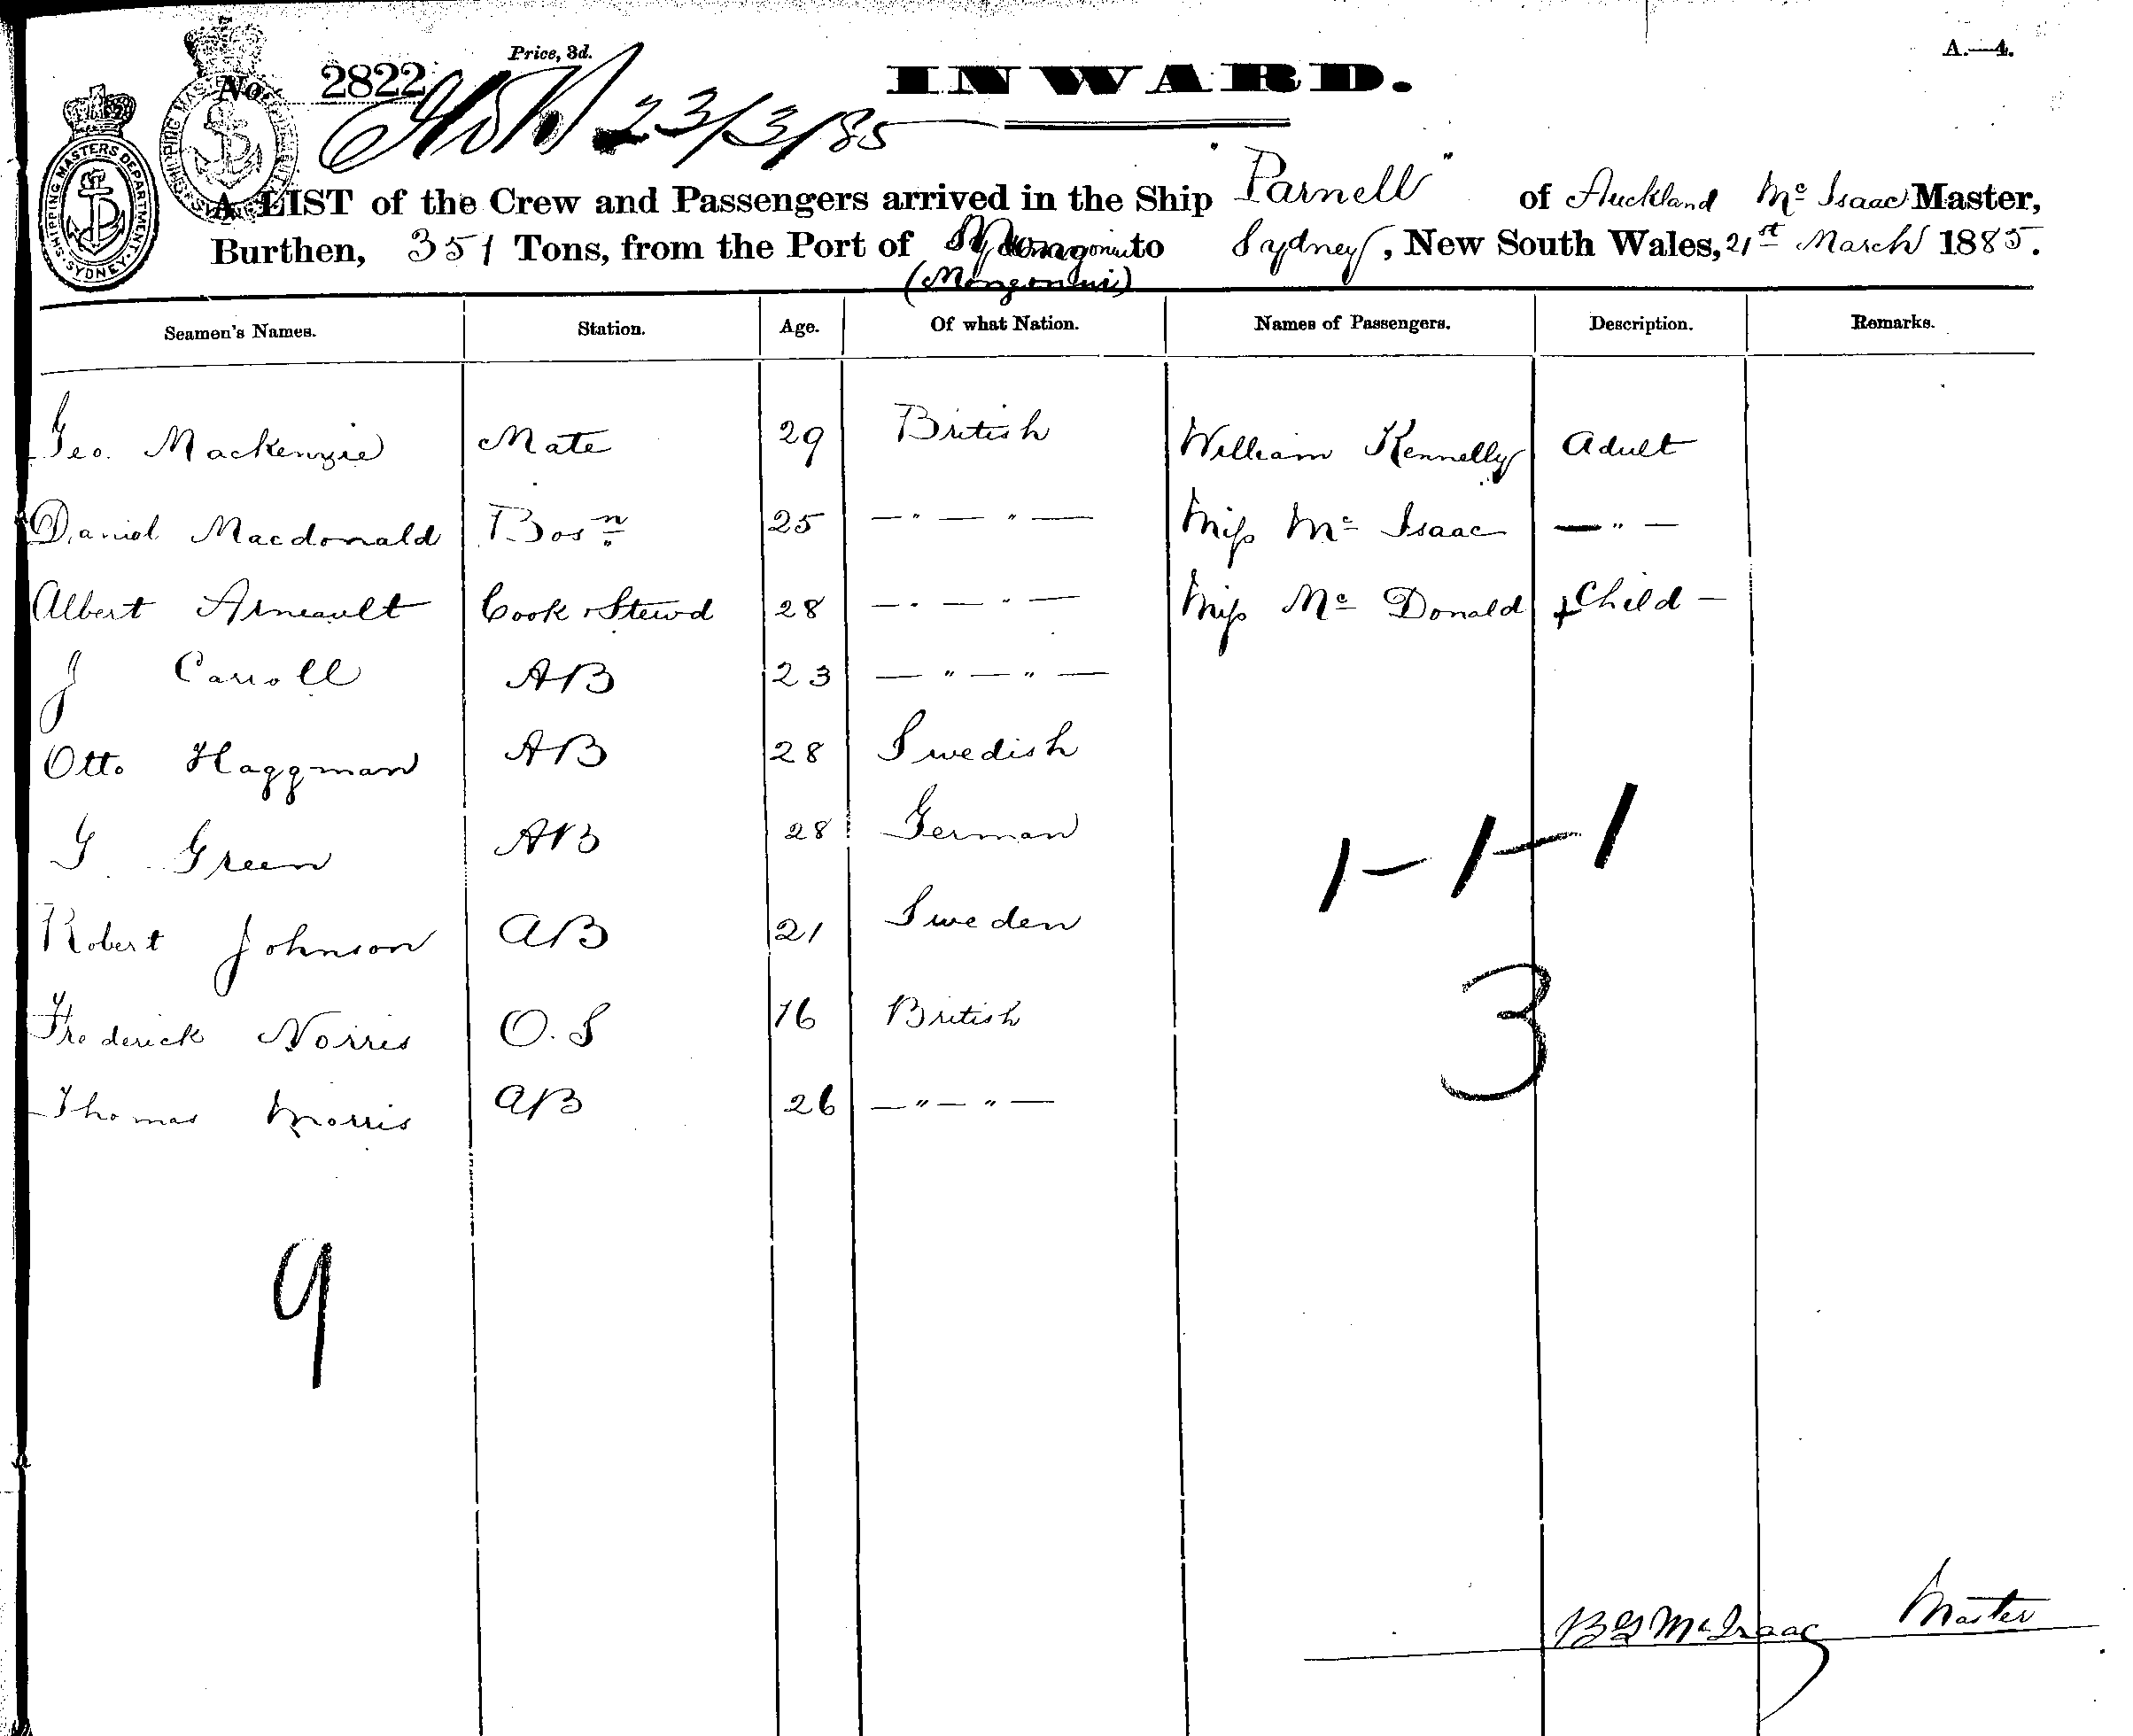 Price, 3d.
A.—4.
No. 2822
INWARD.
23/3/85
SHIPPING MASTERS DEPARTMENT. SYDNEY.
A LIST of the Crew and Passengers arrived in the Ship "Parnell" of Auckland Mc Isaac Master,
Burthen, 351 Tons, from the Port of Mongonui to Sydney, New South Wales, 21st March 1885.
(Mongonui)
Seamen's Names. Station. Age. Of what Nation. Names of Passengers. Description. Remarks.
Geo. Mackenzie Mate 29 British William Kennelly Adult
Daniel Macdonald Bosn 25 — " — " — Miss Mc Isaac — " —
Albert Arneault Cook & Stewd 28 — " — " — Miss Mc Donald Child —
J Carroll AB 23 — " — " —
Otto Haggman AB 28 Swedish
G Green AB 28 German
Robert Johnson AB 21 Sweden
Frederick Norris O.S 16 British
Thomas Morris AB 26 — " — " —
1 – 1 – 1
3
9
B G McIsaac Master